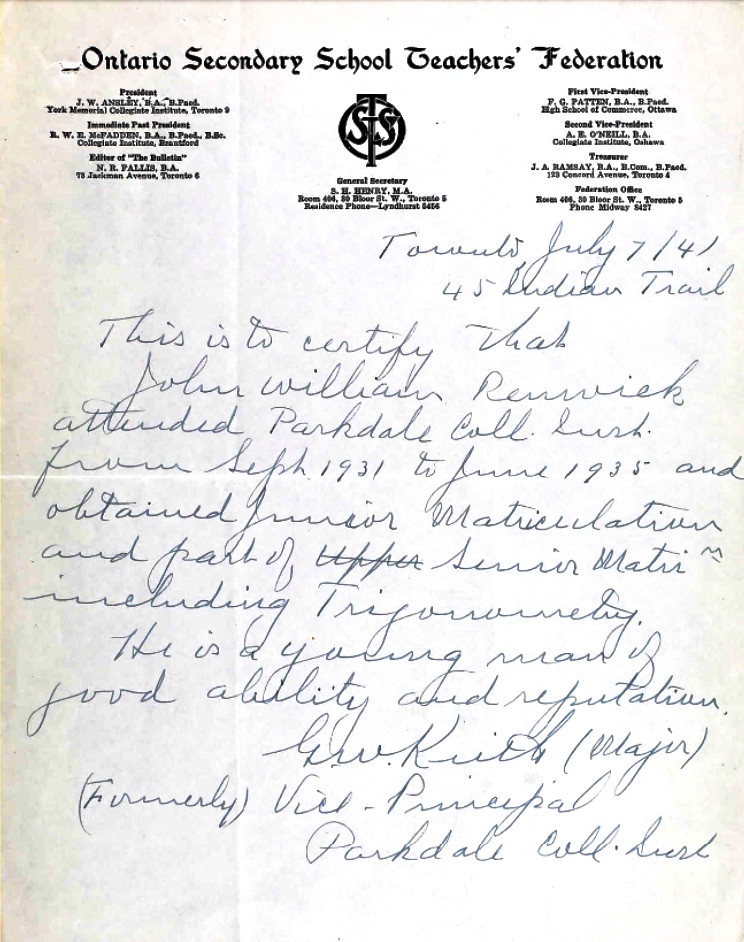 Ontario Secondary School Teachers' Federation
President
J. W. ANSLEY, B.A., B.Paed.
York Memorial Collegiate Institute, Toronto 9
Immediate Past President
R. W. E. McFADDEN, B.A., B.Paed., B.Sc.
Collegiate Institute, Brantford
Editor of "The Bulletin"
N. R. FALLIS, B.A.
78 Jackman Avenue, Toronto 6
General Secretary
S. H. HENRY, M.A.
Room 406, 30 Bloor St. W., Toronto 5
Residence Phone—Lyndhurst 5456
First Vice-President
F. G. PATTEN, B.A., B.Paed.
High School of Commerce, Ottawa
Second Vice-President
A. E. O'NEILL, B.A.
Collegiate Institute, Oshawa
Treasurer
J. A. RAMSAY, B.A., B.Com., B.Paed.
123 Concord Avenue, Toronto 4
Federation Office
Room 406, 30 Bloor St. W., Toronto 5
Phone Midway 3427
Toronto, July 7/41
45 Indian Trail
This is to certify that
John William Renwick
attended Parkdale Coll. Inst.
from Sept. 1931 to June 1935 and
obtained Junior Matriculation
and part of Upper Senior Matri'n
including Trigonometry.
He is a young man of
good ability and reputation.
G.W. Keith (Major)
(Formerly) Vice-Principal
Parkdale Coll. Inst